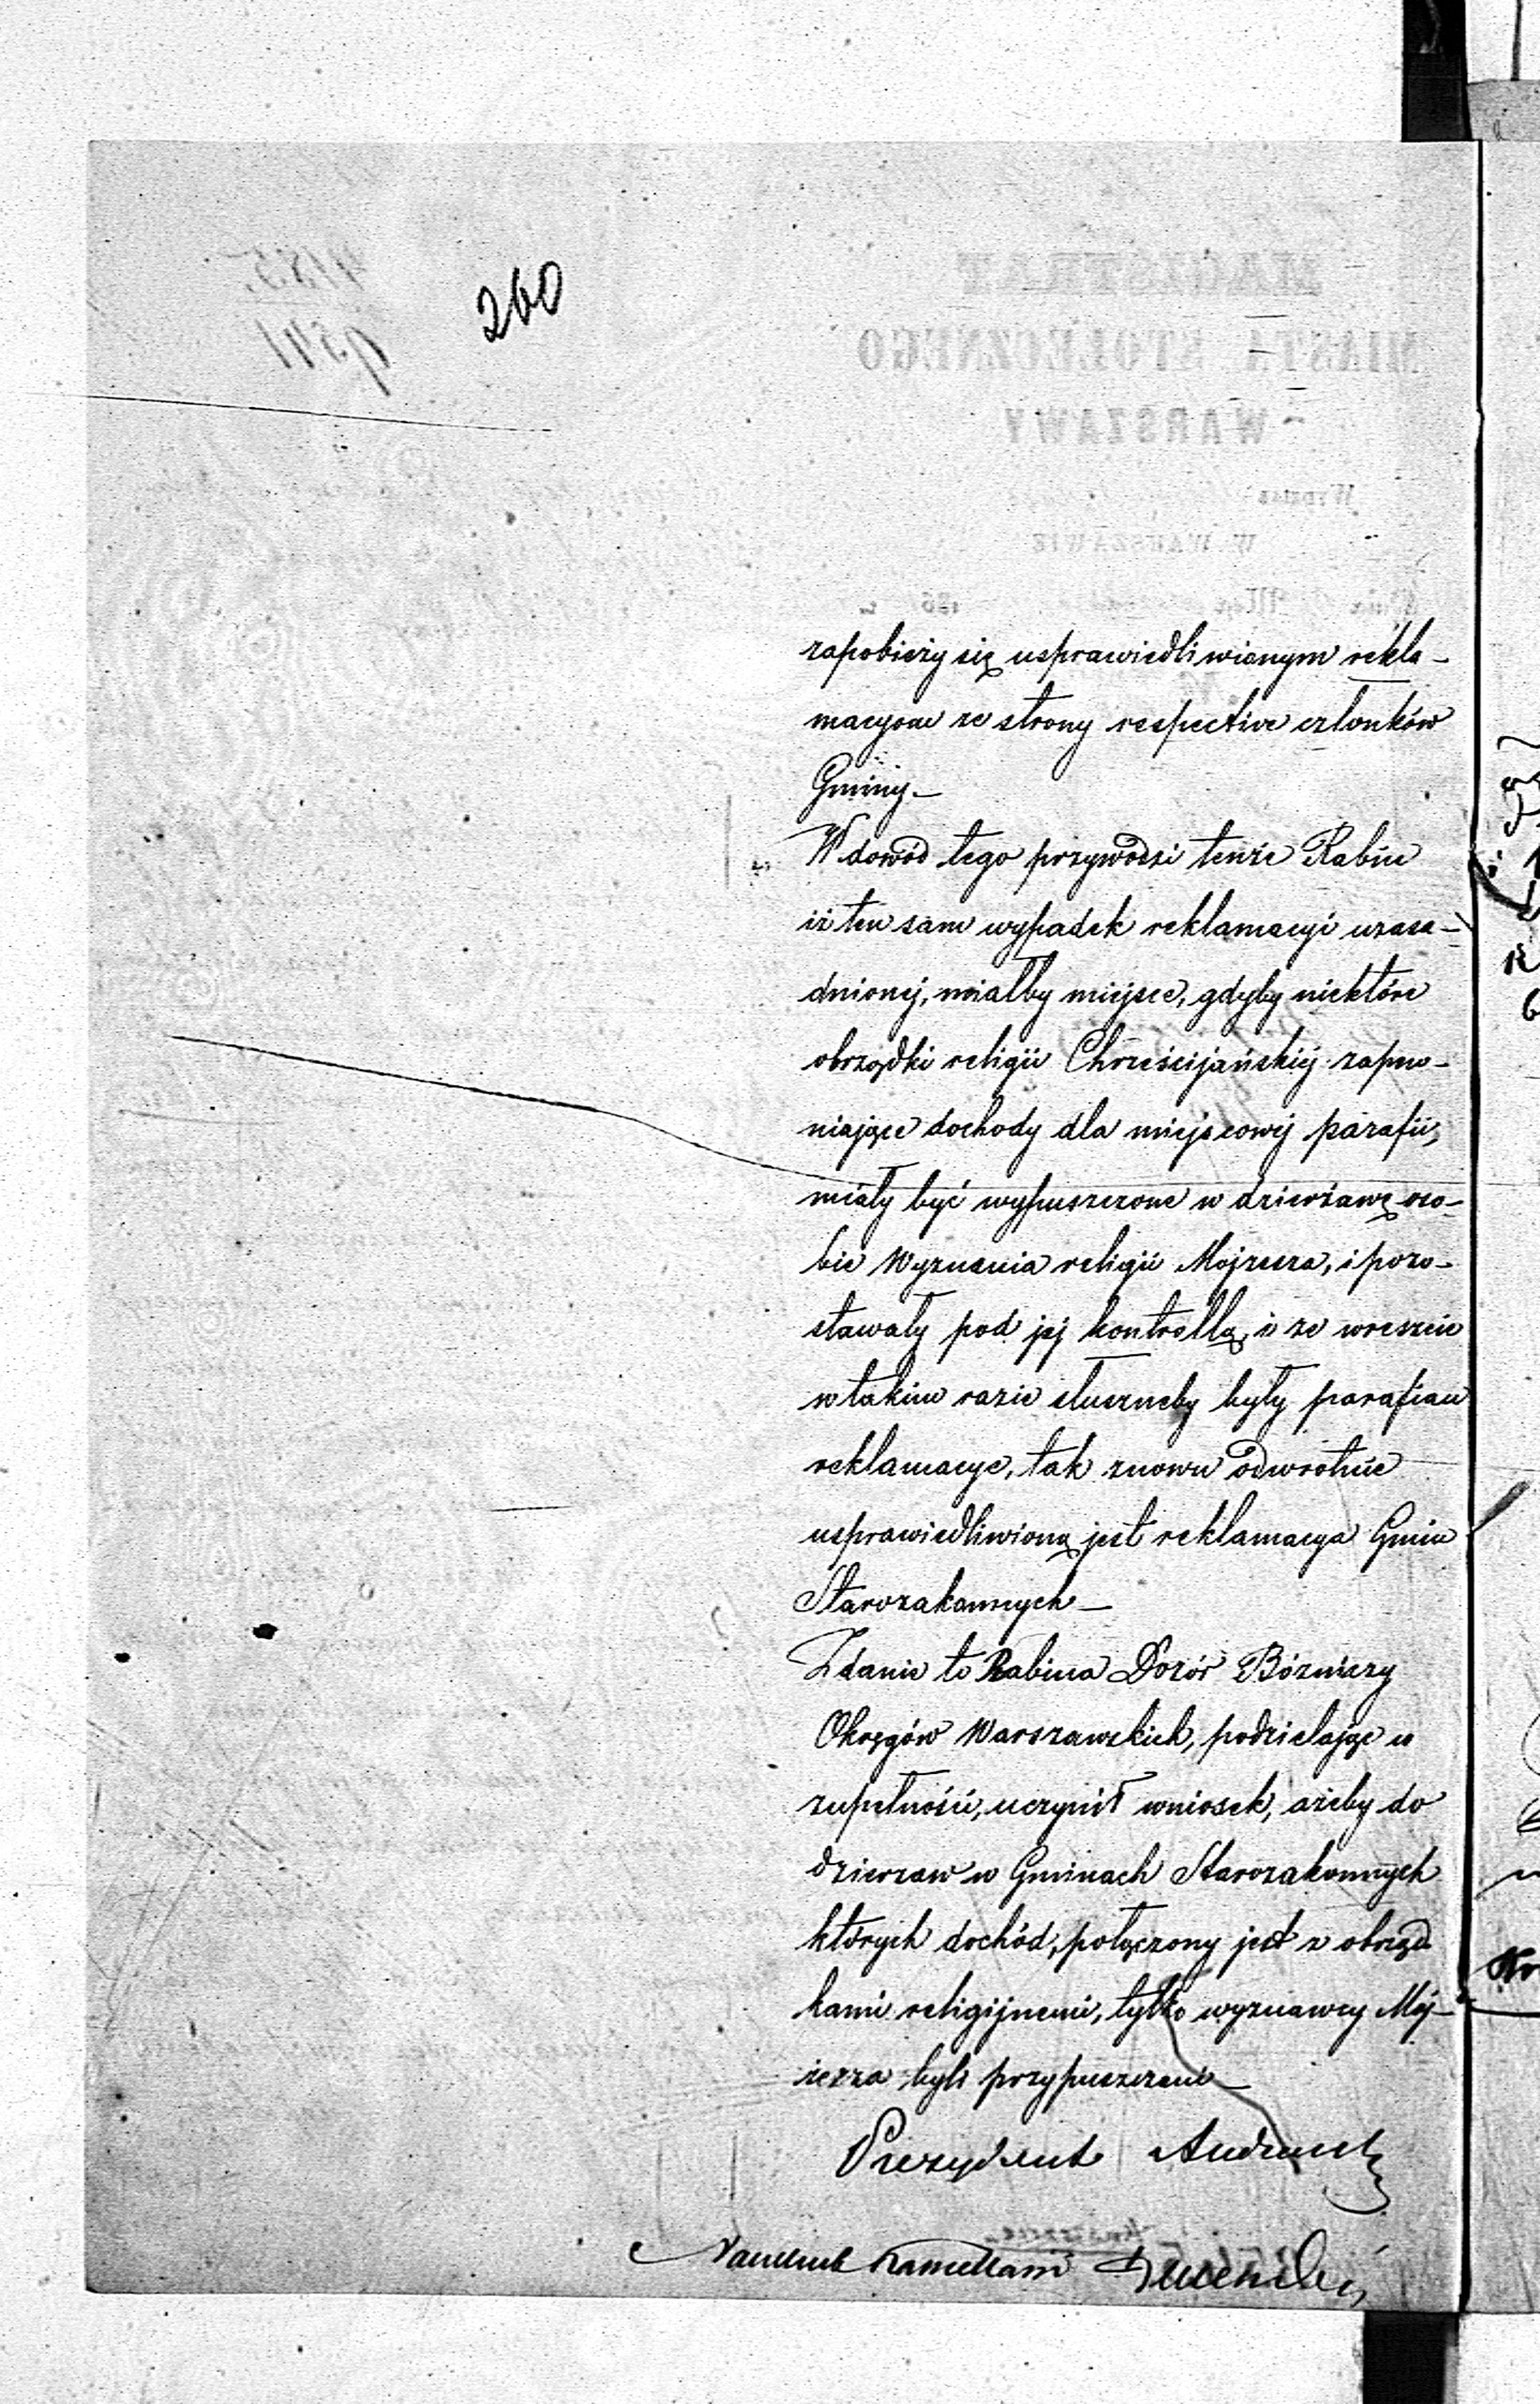 260
zapobieży się usprawiedliwionym rekla-
macyom ze strony respective członków
Gminy.-
W dowód tego przywodzi tenże Rabin
iż ten sam wypadek reklamacyi uzasa-
dnionej, miałby miejsce, gdyby niektóre
obrządki religii Chrześcijańskiej zapew-
niające dochody dla miejscowej parafii,
miały być wypuszczone w dzierżawę oso-
bie Wyznania religii Mojżesza, i pozo-
stawały pod jej kontrollą, i że wreszcie
w takim razie słuszneby były parafian
reklamacye, tak znowu odwrotnie
usprawiedliwioną jest reklamacya Gmin
Starozakonnych-
Zdanie to Rabina Dozór Bóżniczy
Okręgów Warszawskich, podzielając w
zupełności, uczynił wniosek, ażeby do
dzierzaw w Gminach Starozakonnych
których dochód, połączony jest z obrząd
kami religijnemi, tylko wyznawcy Moj-
żesza byli przypuszczeni-
Prezydent
Naczelnik Kancellarii